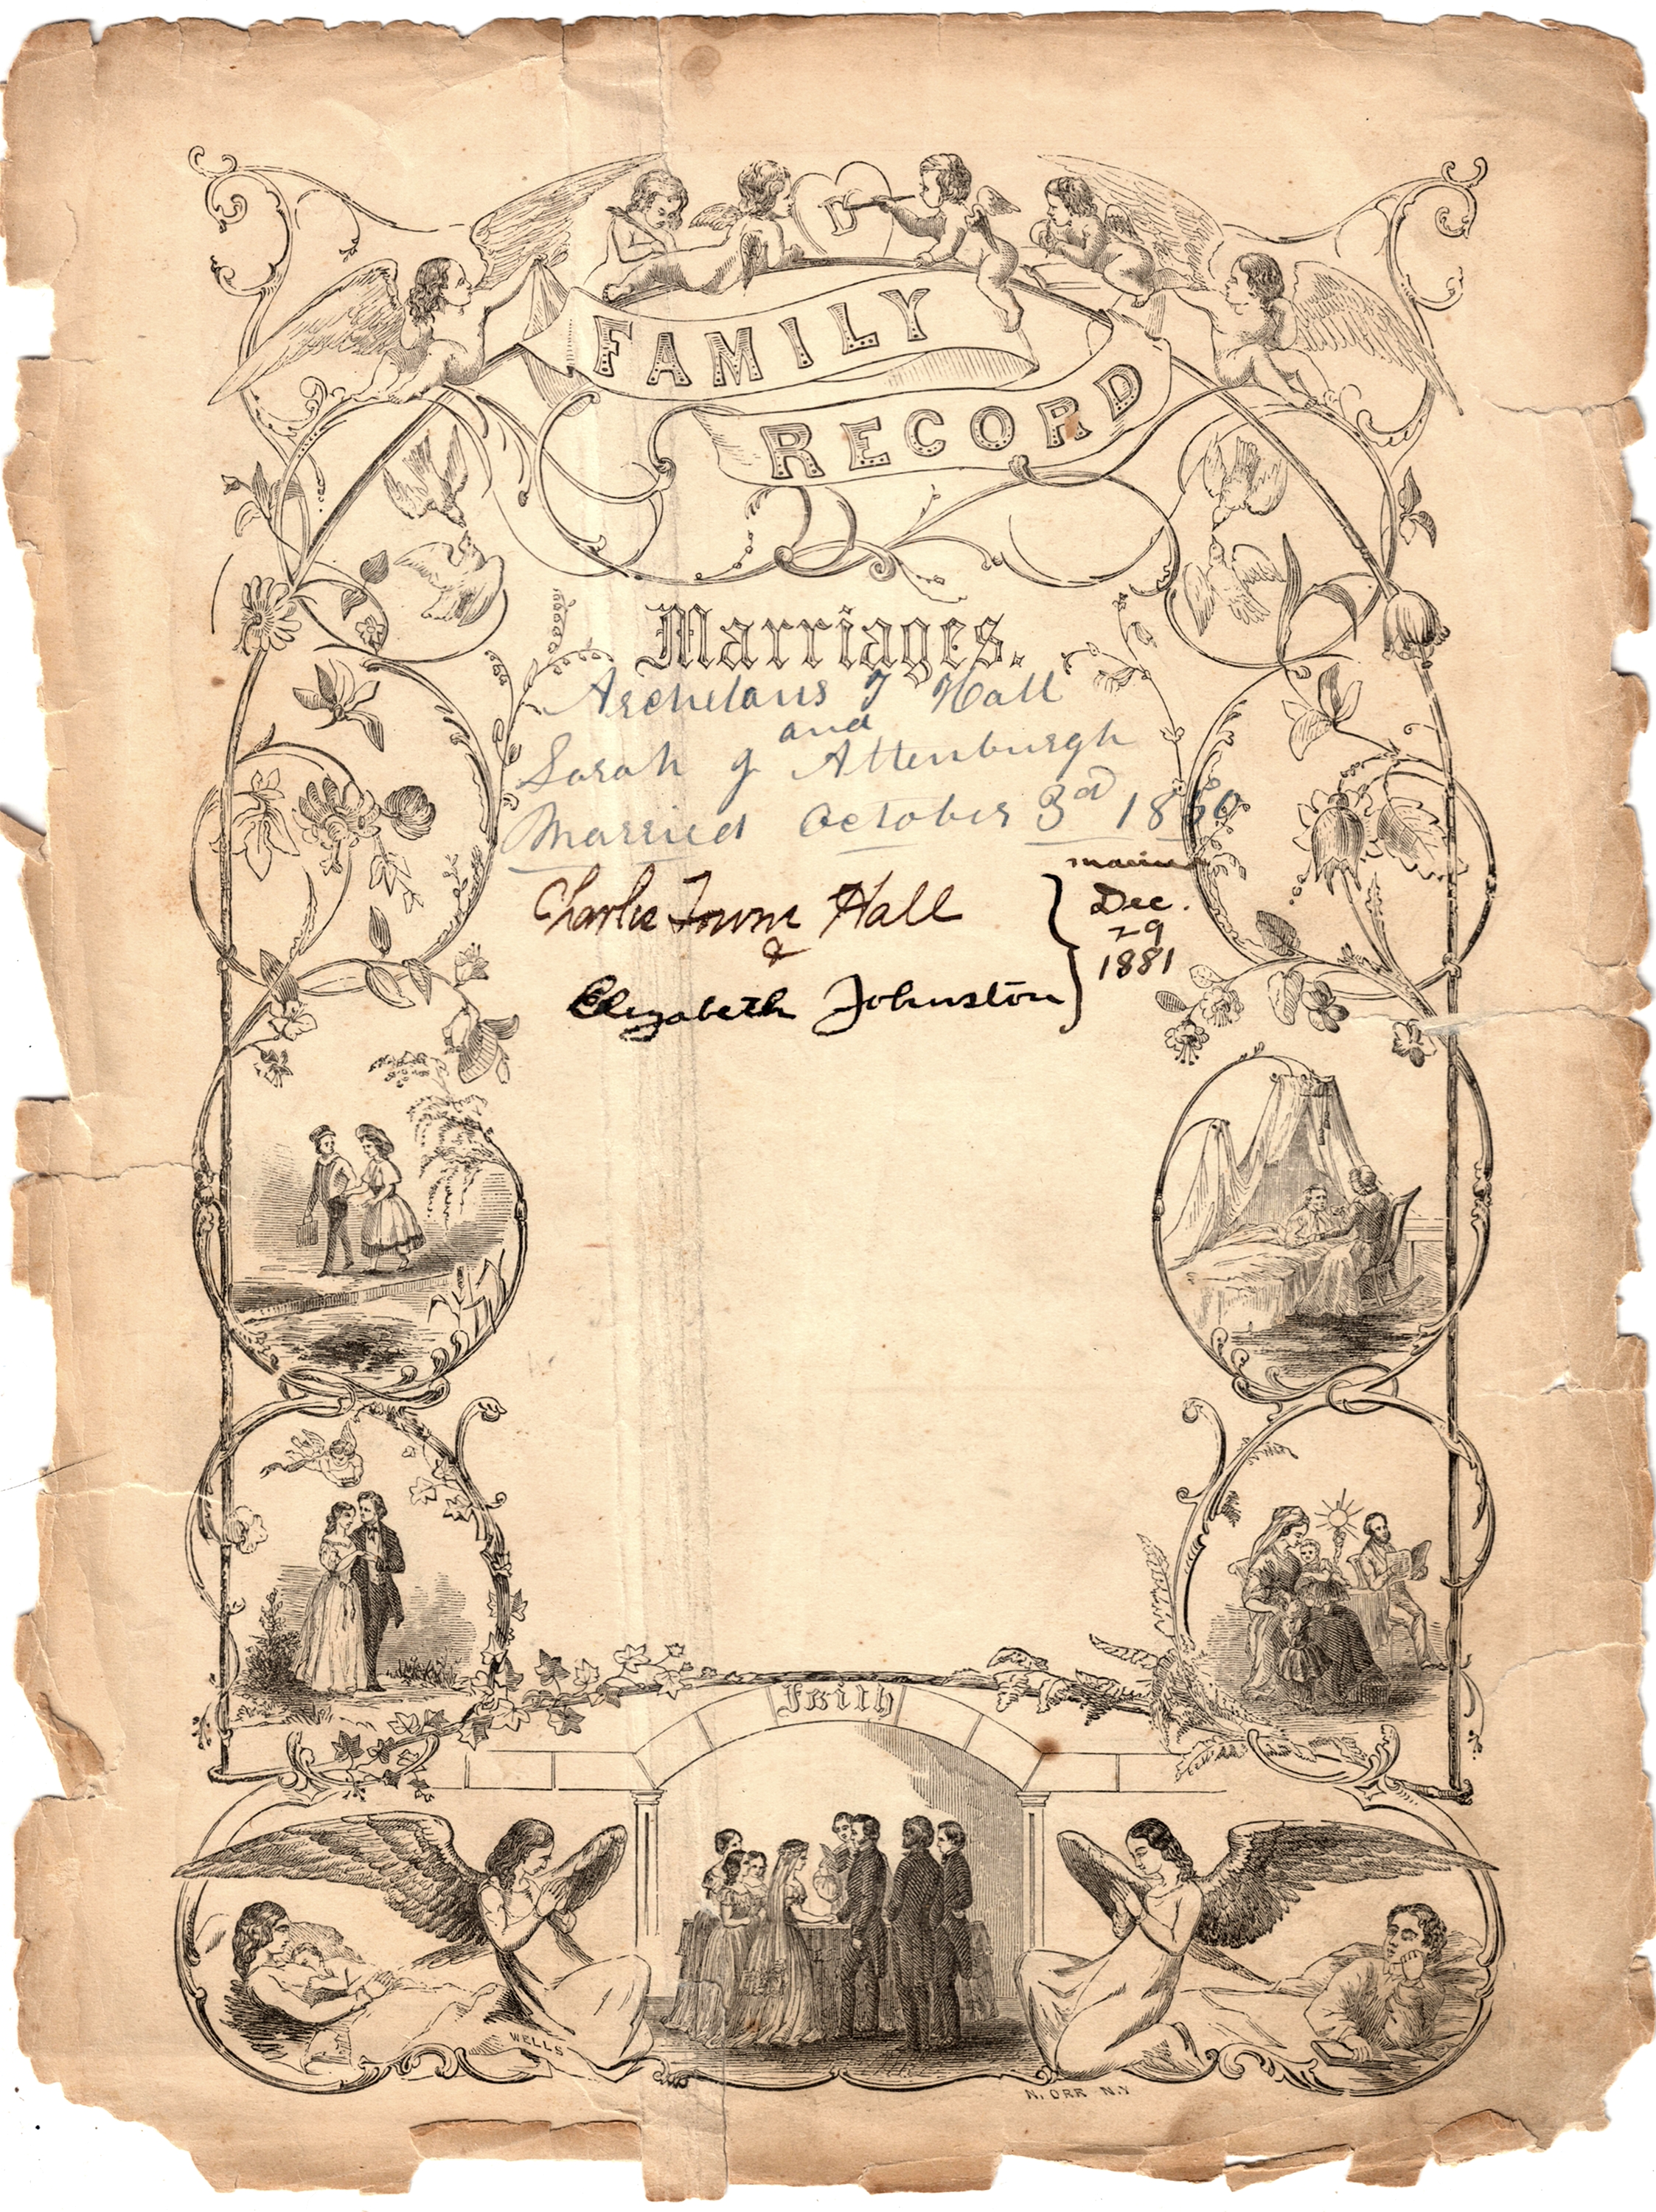 D
FAMILY
RECORD
Marriages.
Archelaus J Hall
and
Sarah J Attenburgh
Married October 3rd 1860
Charlie Towne Hall
&
Elizabeth Johnston
Dec.
29
1881
Faith
WELLS
N. ORR N.Y